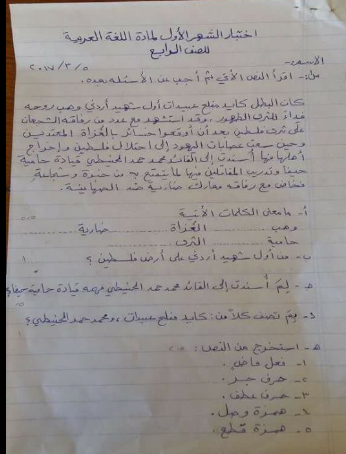 اختبار الشهر الأول لمادة اللغة العربية
للصف الرابع
الاسم:-
٢٠١٧/٣/٥
س١:- اقرأ النص الآتي ثم أجب عن الأسئلة بعده.
كان البطل كايد مفلح عبيدات أول شهيد أردني وهب روحه
فداءً للثرى الطهور، وقد استشهد مع عدد من رفاقه الشجعان
على ثرى فلسطين بعد أن أوقعوا خسائر بالغزاة المعتدين
وحين سعت عصابات اليهود إلى احتلال فلسطين وإخراج
أهلها منها أسندت إلى القائد محمد حمد الحنيطي قيادة حامية
حيفا وتدريب المقاتلين فيها لما يتمتع به من خبرة وشجاعة
فخاض مع رفاقه معارك ضارية ضد الصهاينة.
أ- ما معنى الكلمات الآتية
وهب الغزاة ضارية
حامية الثرى
ب- من أول شهيد أردني على أرض فلسطين؟
ج- لِمَ أسندت إلى القائد محمد حمد الحنيطي مهمة قيادة حامية حيفا؟
د- بِمَ تصف كلاً من: كايد مفلح عبيدات، ومحمد حمد الحنيطي؟
هـ- استخرج من النص:
١- فعل ماضٍ.
٢- حرف جر.
٣- حرف عطف.
٤- همزة وصل.
٥- همزة قطع.